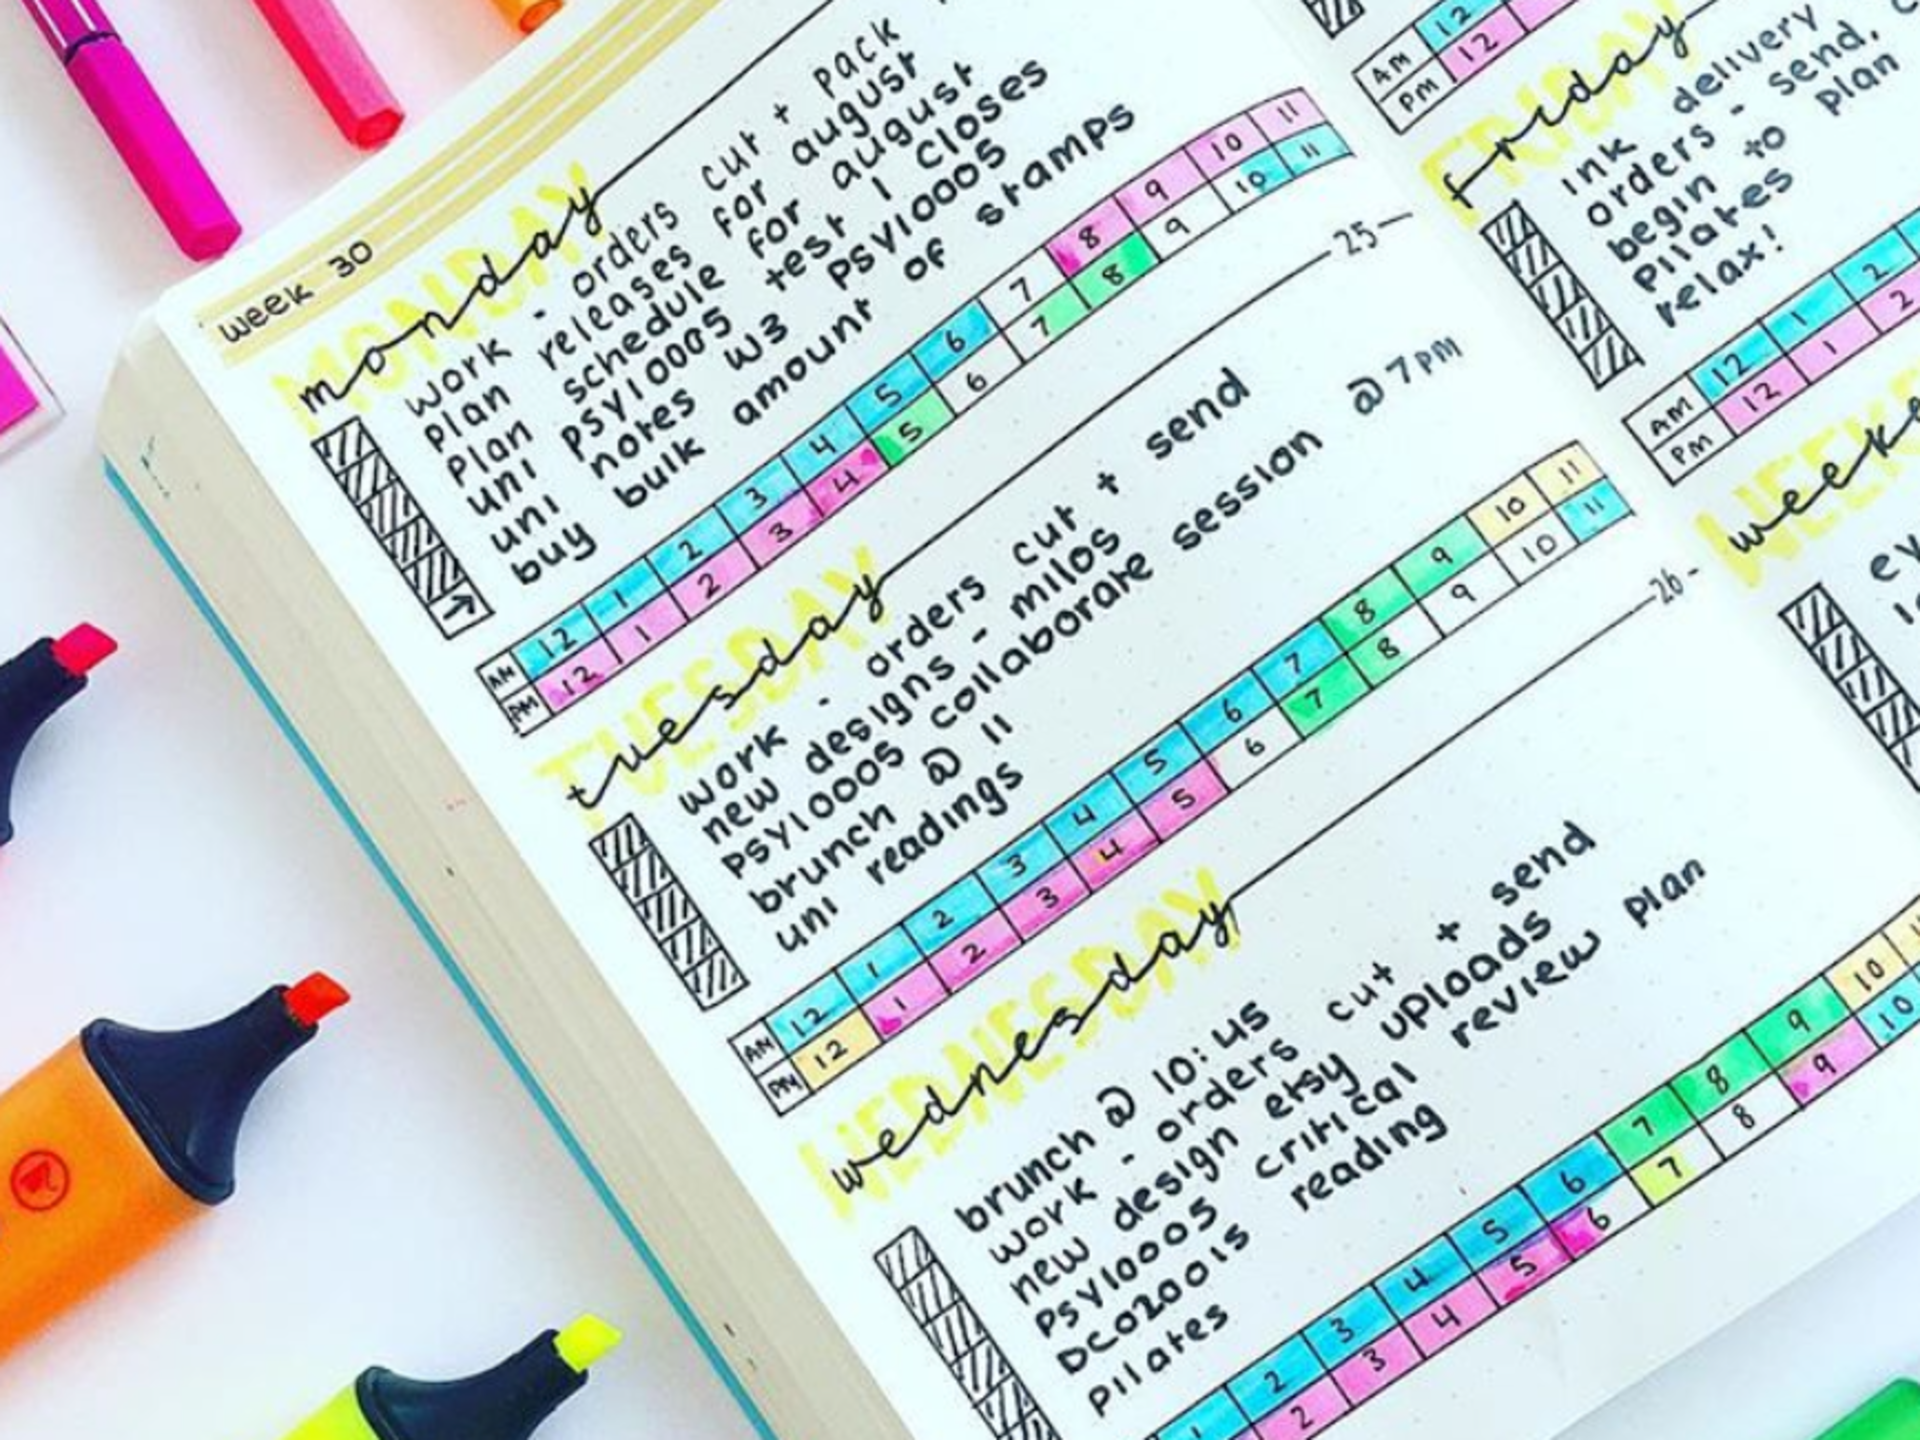 week 30
monday
MONDAY
work - orders cut + pack
plan releases for august
plan schedule for august
uni psy10005 test 1 closes
uni notes W3 psy10005
buy bulk amount of stamps
AM 12 1 2 3 4 5 6 7 8 9 10 11
PM 12 1 2 3 4 5 6 7 8 9 10 11
25
tuesday
TUESDAY
work - orders cut + send
new designs - milos
psy10005 collaborate session @ 7PM
brunch @ 11
uni readings
AM 12 1 2 3 4 5 6 7 8 9 10 11
PM 12 1 2 3 4 5 6 7 8 9 10 11
26
wednesday
WEDNESDAY
brunch @ 10:45
work - orders cut + send
new design etsy uploads
psy10005 critical review plan
DCO20015 reading
pilates
1 2 3 4 5 6 7 8 9 10
2 3 4 5 6 7 8 9 10
AM 12
PM 12
friday
FRIDAY
ink delivery
orders - send,
begin to plan
pilates
relax!
AM 12 1 2
PM 12 1 2
weeke
WEEKE